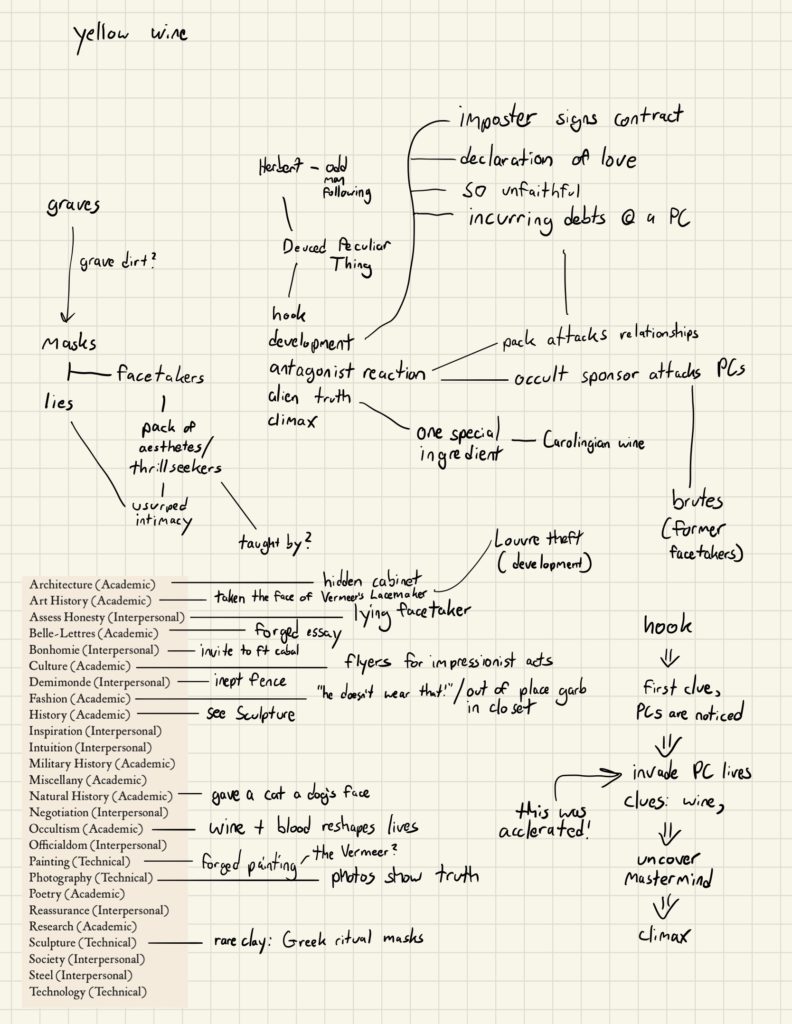 yellow wine
imposter signs contract
declaration of love
so unfaithful
incurring debts @ a PC
Herbert - odd
man
following
Deuced Peculiar
Thing
graves
grave dirt?
masks
facetakers
lies
pack of
aesthetes/
thrillseekers
usurped
intimacy
taught by?
hook
development
antagonist reaction
alien truth
climax
pack attacks relationships
occult sponsor attacks PCs
one special
ingredient
Carolingian wine
brutes
(former
facetakers)
Louvre theft
(development)
Architecture (Academic) hidden cabinet
Art History (Academic) taken the face of Vermeer's Lacemaker
Assess Honesty (Interpersonal) lying facetaker
Belle-Lettres (Academic) forged essay
Bonhomie (Interpersonal) invite to ft cabal
Culture (Academic) flyers for impressionist acts
Demimonde (Interpersonal) inept fence
Fashion (Academic) "he doesn't wear that!"/out of place garb
in closet
History (Academic) see Sculpture
Inspiration (Interpersonal)
Intuition (Interpersonal)
Military History (Academic)
Miscellany (Academic)
Natural History (Academic) gave a cat a dog's face
Negotiation (Interpersonal)
Occultism (Academic) wine + blood reshapes lives
Officialdom (Interpersonal)
Painting (Technical) forged painting the Vermeer?
Photography (Technical) photos show truth
Poetry (Academic)
Reassurance (Interpersonal)
Research (Academic)
Sculpture (Technical) rare clay: Greek ritual masks
Society (Interpersonal)
Steel (Interpersonal)
Technology (Technical)
hook
first clue,
PCs are noticed
invade PC lives
clues: wine,
this was
acclerated!
uncover
mastermind
climax